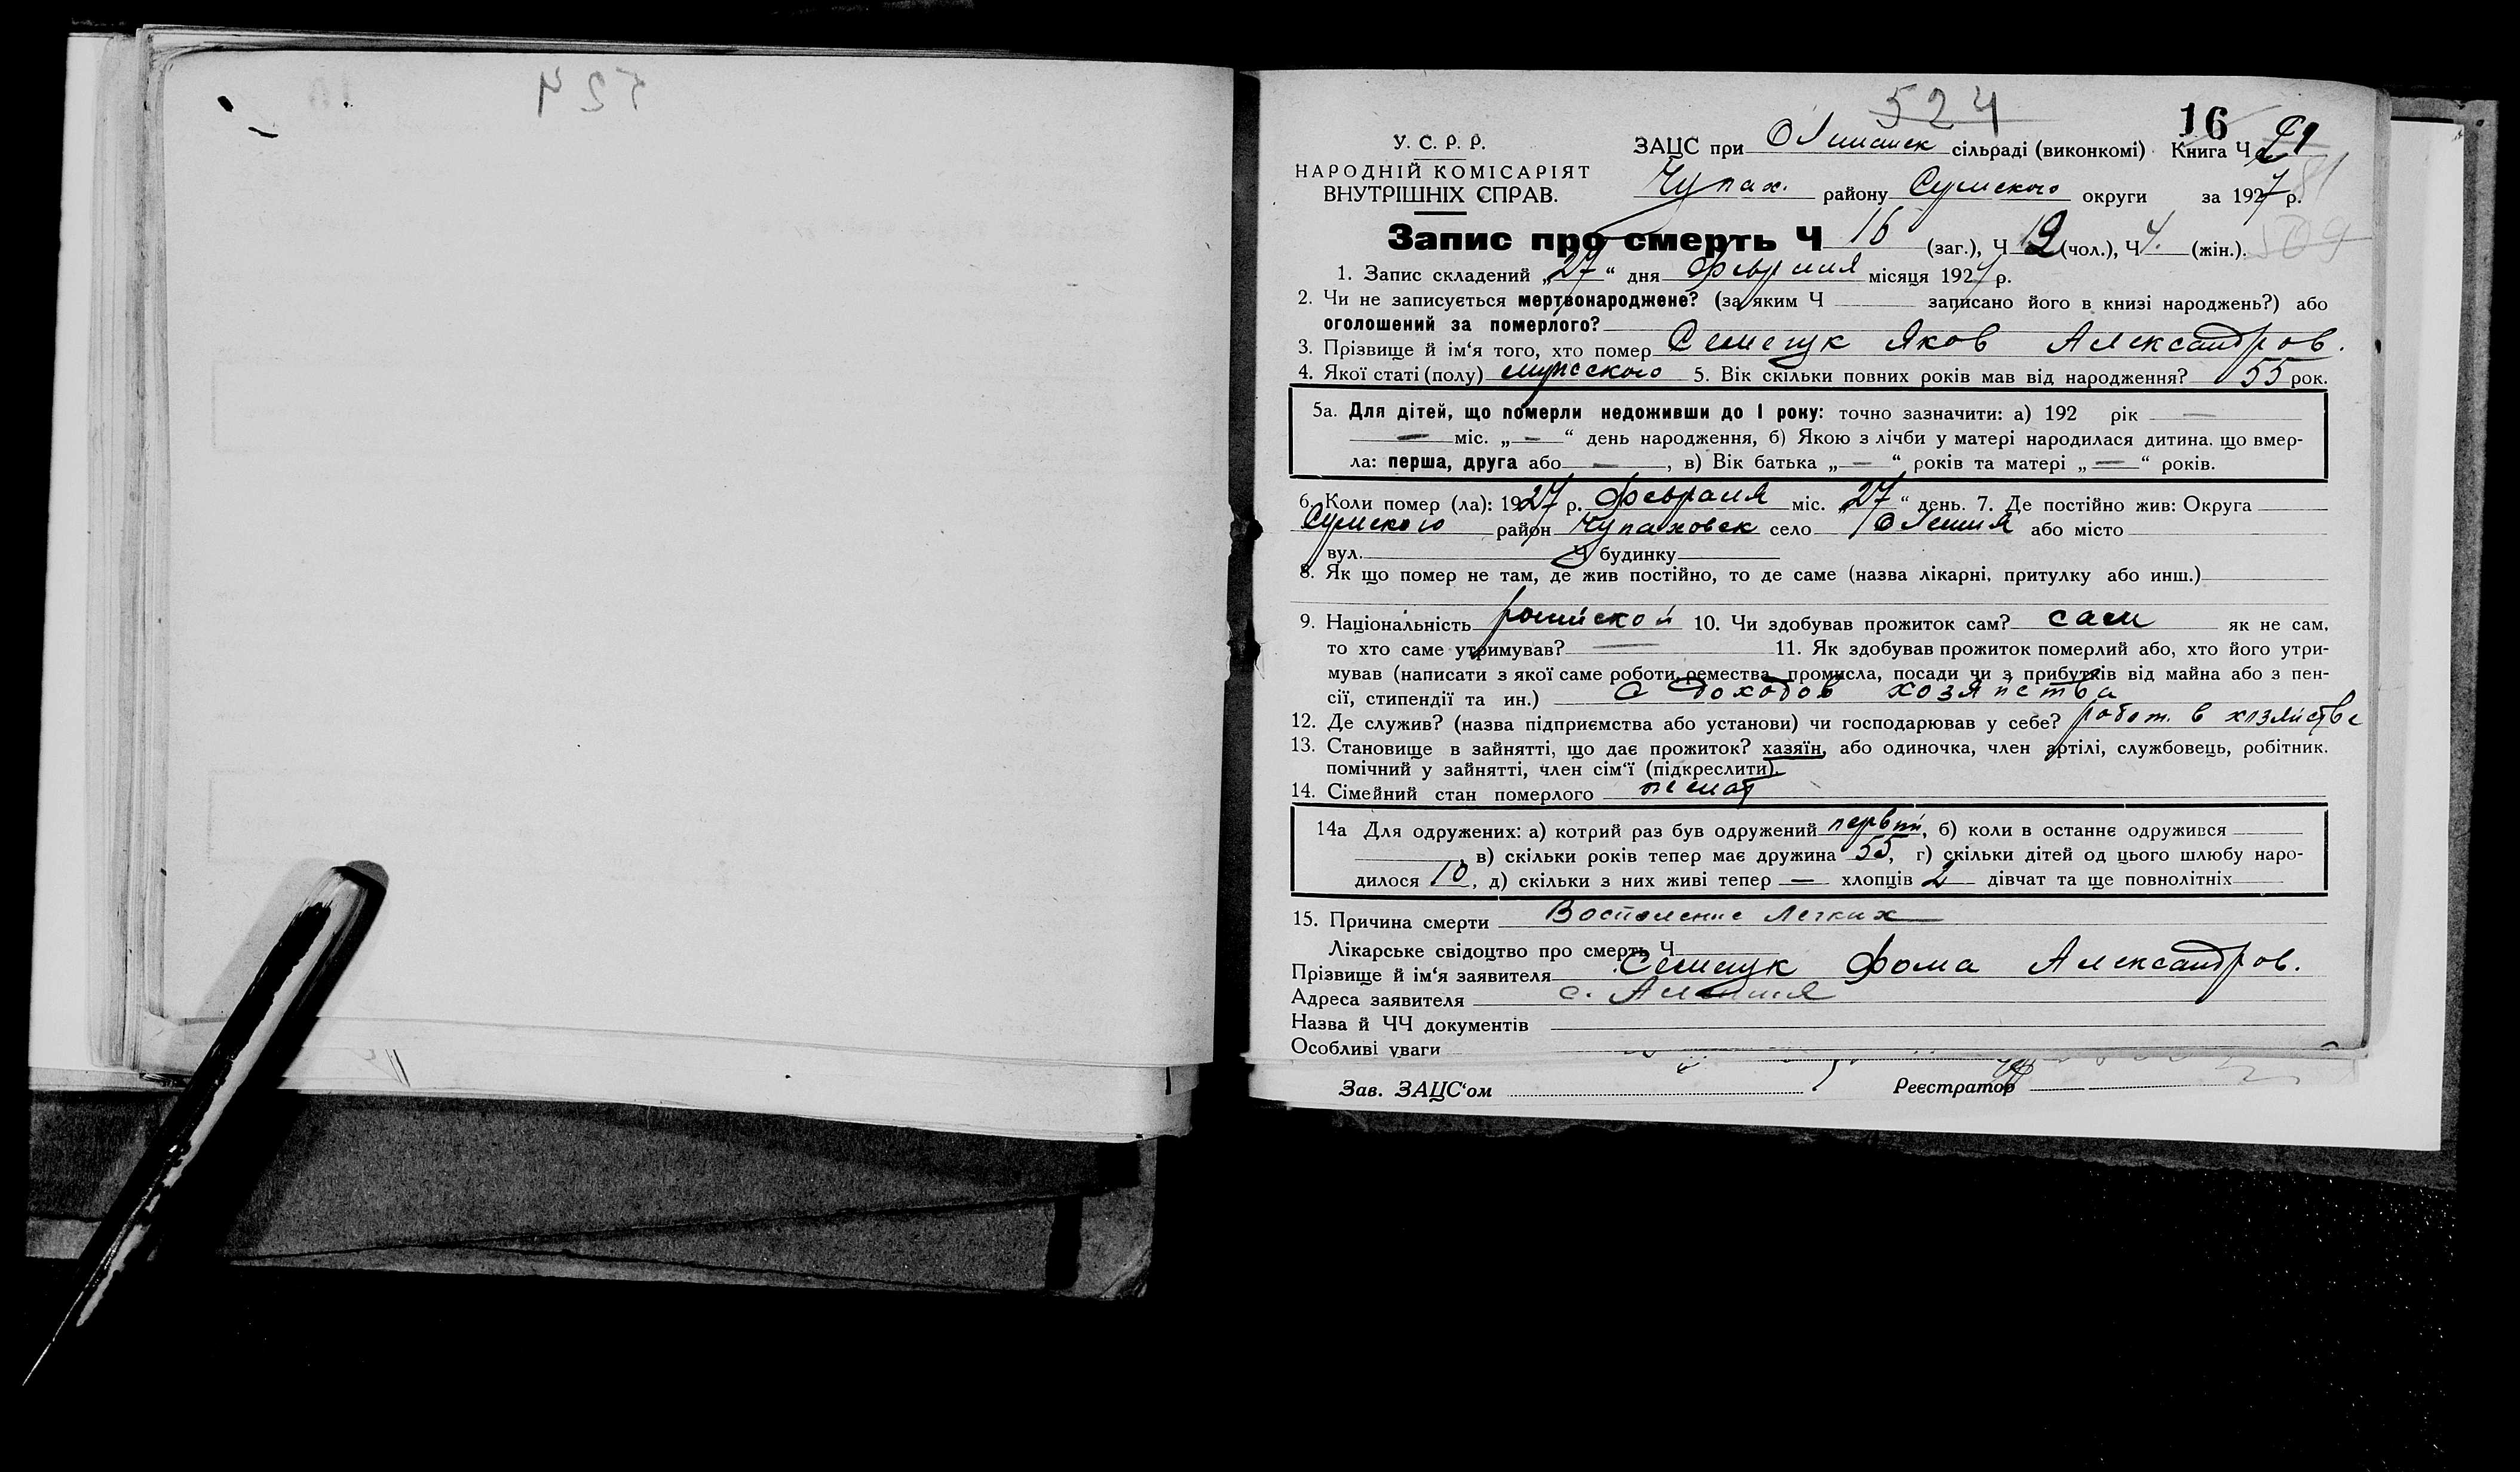 524
16
У. С. Р. Р.
ЗАЦС при Олешанск сільраді (виконкомі) Книга Ч
НАРОДНІЙ КОМІСАРІЯТ
ВНУТРІШНІХ СПРАВ.
Чупах. району Сумского округи за 1927 р.
509
Запис про смерть Ч 16 (заг.), Ч 12 (чол.), Ч 4. (жін.).
1. Запис складений „27“ дня февраля місяця 1927 р.
2. Чи не записується мертвонароджене? (за яким Ч записано його в книзі народжень?) або
оголошений за померлого?
3. Прізвище й ім‘я того, хто помер Семещук Яков Александров.
4. Якої статі (полу) мужского 5. Вік скільки повних років мав від народження? 55 рок.
5а. Для дітей, що померли недоживши до 1 року: точно зазначити: а) 192 рік —
— міс. „—“ день народження, б) Якою з лічби у матері народилася дитина. що вмер-
ла: перша, друга або —, в) Вік батька „—“ років та матері „—“ років.
6. Коли помер (ла): 1927 р. февраля міс. „27“ день. 7. Де постійно жив: Округа
Сумского район Чупаховск село Олешня або місто
вул. Ч будинку
8. Як що помер не там, де жив постійно, то де саме (назва лікарні, притулку або инш.)
9. Національність 10. Чи здобував прожиток сам? сам як не сам,
то хто саме утримував? — 11. Як здобував прожиток померлий або, хто його утри-
мував (написати з якої саме роботи, ремества, промисла, посади чи з прибутків від майна або з пен-
сії, стипендії та ин.) С доходов хозяйства
12. Де служив? (назва підприємства або установи) чи господарював у себе? работ. в хозяйстве
13. Становище в зайнятті, що дає прожиток? хазяїн, або одиночка, член артілі, службовець, робітник.
помічний у зайнятті, член сім‘ї (підкреслити).
14. Сімейний стан померлого женат
14а Для одружених: а) котрий раз був одружений первый, б) коли в останнє одружився
, в) скільки років тепер має дружина 55, г) скільки дітей од цього шлюбу наро-
дилося 10, д) скільки з них живі тепер — хлопців 2 дівчат та ще повнолітніх
15. Причина смерти Воспаление легких
Лікарське свідоцтво про смерть Ч
Прізвище й ім‘я заявителя Семещук Фома Александров.
Адреса заявителя с. Алешня
Назва й ЧЧ документів
Особливі уваги
Зав. ЗАЦС‘ом Реєстратор